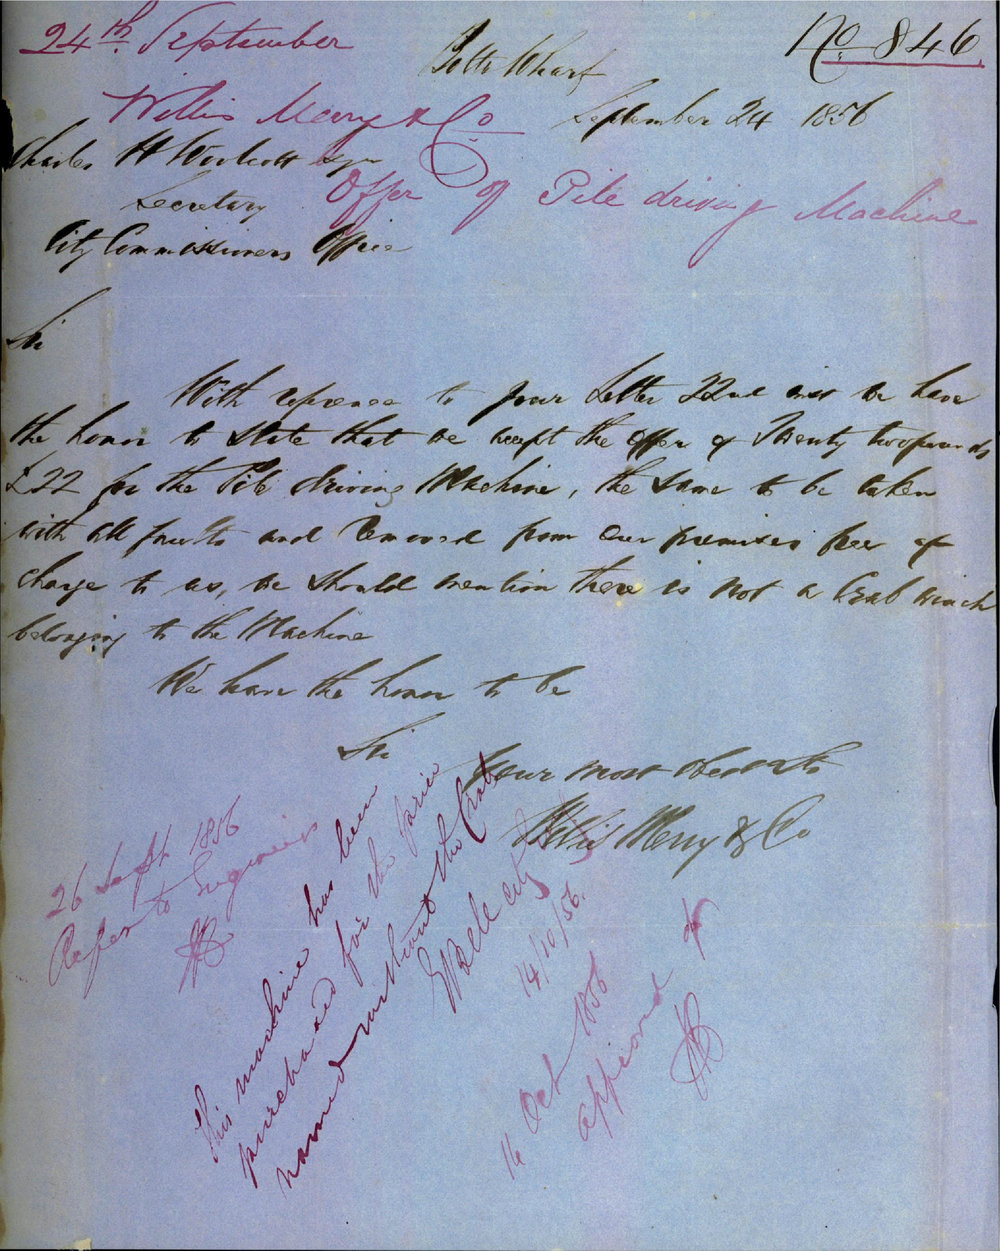 24th September
No. 846
Botts Wharf
Willis Merry & Co
September 24 1856
Charles H Woolcott Esqr
Offer of Pile driving Machine
Secretary
City Commissioners Office
Sir
With reference to your Letter 22nd inst we have
the honor to state that we accept the offer of Twenty two pounds
£22 for the Pile driving Machine, the same to be taken
with all faults and removed from our premises free of
charge to us, we should mention there is not a Crab winch
belonging to the Machine
We have the honor to be
Sir
Your most obedt
Willis Merry & Co
26 Sept 1856
Refer to Engineer
This machine has been
purchased for the price
named without the Crab
E Bell City
14/10/56.
16 Oct 1856
approved